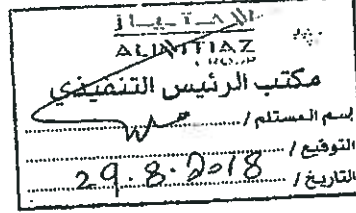 الامتياز
ALIMTIAZ
مكتب الرئيس التنفيذي
إسم المستلم /
التوقيع /
التاريخ / 29.8.2018